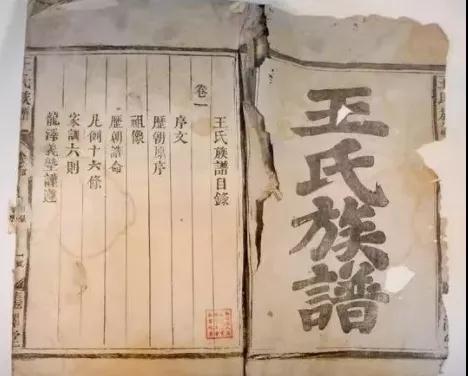 王氏族譜
王氏族譜目錄
卷一
序文
歷朝原序
祖像
歷朝誥命
凡例十六條
家訓六則
王氏族譜